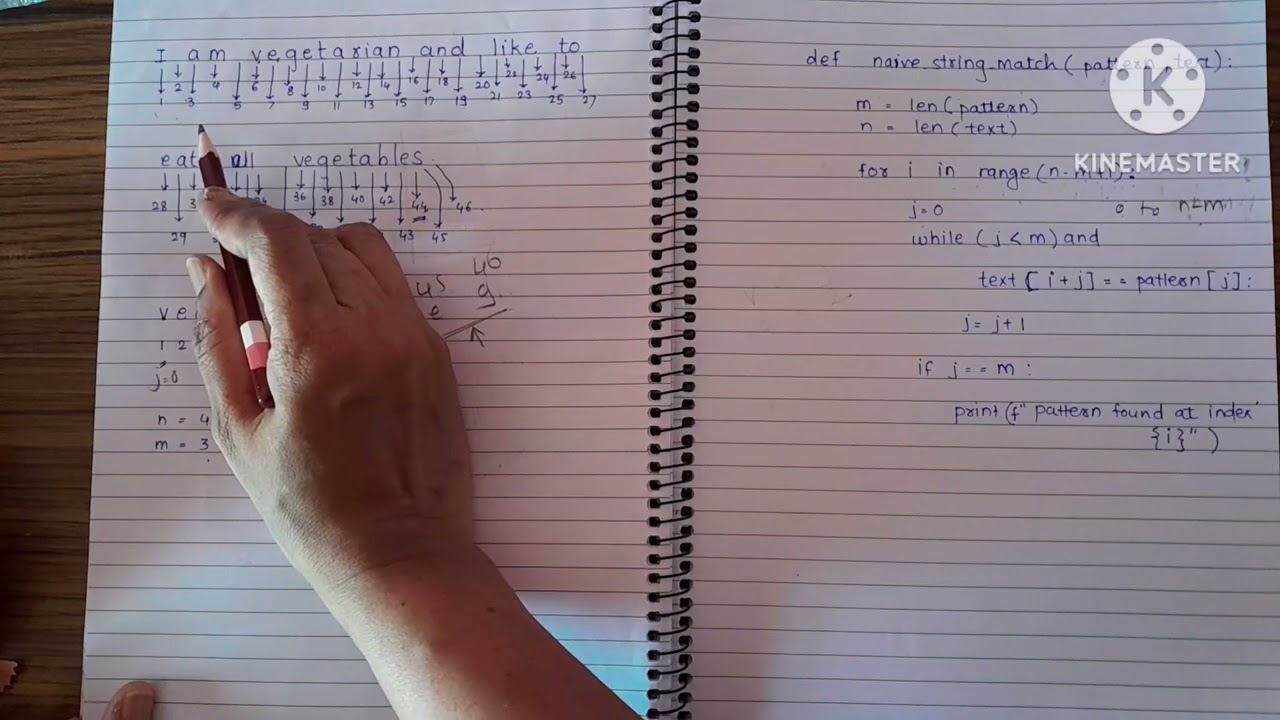 I am vegetarian and like to
1 2 3 4 5 6 7 8 9 10 11 12 13 14 15 16 17 18 19 20 21 22 23 24 25 26 27
eat all vegetables.
28 29 36 38 40 42 43 44 45 46
45 46
v e e g
1 2
j=0
n = 4
m = 3
def naive_string-match( pattern, text):
m = len(pattern)
n = len(text)
for i in range(n-m+1):
j=0 0 to n-m
while (j<m) and
text [i+j] == pattern[j]:
j = j+1
if j == m :
print(f" pattern found at index
{i}")
K
KINEMASTER